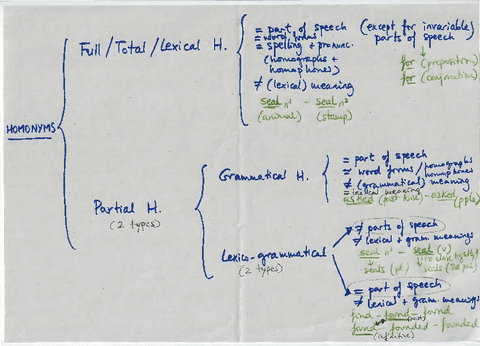 HOMONYMS
Full / Total / Lexical H.
= part of speech (except for invariable) parts of speech
= word forms
= spelling + pronunc.
(homographs + homophones)
≠ (lexical) meaning
seal n¹ - seal n²
(animal) (stamp)
for (preposition)
for (conjunction)
Partial H.
(2 types)
Grammatical H.
= part of speech
= word forms / homographs homophones
≠ (grammatical) meaning
= lexical meaning
asked (past tense) - asked (pple)
Lexico-grammatical
(2 types)
≠ parts of speech
≠ lexical + gram. meanings
seal n¹ - seal (v)
(to close tightly)
→ seals (pl.) → seals (3rd pers.)
= part of speech
≠ lexical + gram. meanings
find - found - found
found - founded - founded
(infinitive)